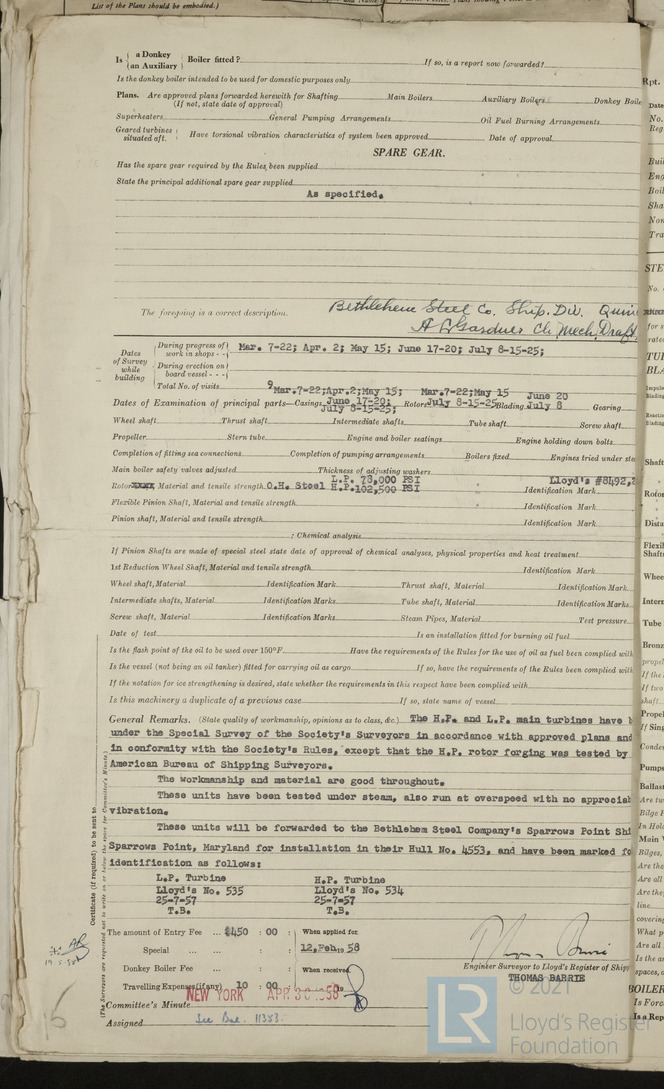 List of the Plans should be embodied.)
Is { a Donkey / an Auxiliary } Boiler fitted? If so, is a report now forwarded?
Is the donkey boiler intended to be used for domestic purposes only
Plans. Are approved plans forwarded herewith for Shafting Main Boilers Auxiliary Boilers Donkey Boile
(If not, state date of approval)
Superheaters General Pumping Arrangements Oil Fuel Burning Arrangements
Geared turbines situated aft. } Have torsional vibration characteristics of system been approved Date of approval
SPARE GEAR.
Has the spare gear required by the Rules been supplied
State the principal additional spare gear supplied
As specified.
The foregoing is a correct description.
Bethlehem Steel Co. Ship. Div. Quin
A C Gardner Ch. Mech. Draft
Dates of Survey while building
During progress of work in shops - - Mar. 7-22; Apr. 2; May 15; June 17-20; July 8-15-25;
During erection on board vessel - - -
Total No. of visits 9
Mar.7-22;Apr.2;May 15; Mar.7-22;May 15 June 20
Dates of Examination of principal parts—Casings June 17-20; Rotors July 8-15-25 Blading July 8 Gearing
July 8-15-25;
Wheel shaft Thrust shaft Intermediate shafts Tube shaft Screw shaft
Propeller Stern tube Engine and boiler seatings Engine holding down bolts
Completion of fitting sea connections Completion of pumping arrangements Boilers fixed Engines tried under ste
Main boiler safety valves adjusted Thickness of adjusting washers
L.P. 78,000 PSI Lloyd's #8492,
Rotor Material and tensile strength O.H. Steel H.P.102,500 PSI Identification Mark
Flexible Pinion Shaft, Material and tensile strength Identification Mark
Pinion shaft, Material and tensile strength Identification Mark
: Chemical analysis
If Pinion Shafts are made of special steel state date of approval of chemical analyses, physical properties and heat treatment
1st Reduction Wheel Shaft, Material and tensile strength Identification Mark
Wheel shaft, Material Identification Mark Thrust shaft, Material Identification Mark
Intermediate shafts, Material Identification Marks Tube shaft, Material Identification Marks
Screw shaft, Material Identification Marks Steam Pipes, Material Test pressure
Date of test Is an installation fitted for burning oil fuel
Is the flash point of the oil to be used over 150°F. Have the requirements of the Rules for the use of oil as fuel been complied with
Is the vessel (not being an oil tanker) fitted for carrying oil as cargo If so, have the requirements of the Rules been complied wit
If the notation for ice strengthening is desired, state whether the requirements in this respect have been complied with
Is this machinery a duplicate of a previous case If so, state name of vessel
General Remarks. (State quality of workmanship, opinions as to class, &c.) The H.P. and L.P. main turbines have b
under the Special Survey of the Society's Surveyors in accordance with approved plans and
in conformity with the Society's Rules, except that the H.P. rotor forging was tested by
American Bureau of Shipping Surveyors.
The workmanship and material are good throughout.
These units have been tested under steam, also run at overspeed with no appreciab
vibration.
These units will be forwarded to the Bethlehem Steel Company's Sparrows Point Shi
Sparrows Point, Maryland for installation in their Hull No. 4553, and have been marked fo
identification as follows:
L.P. Turbine H.P. Turbine
Lloyd's No. 535 Lloyd's No. 534
25-7-57 25-7-57
T.B. T.B.
The amount of Entry Fee ... $450 : 00 : When applied for
Special ... ... : : 12.Feb. 19 58
Donkey Boiler Fee ... : : When received
Travelling Expenses (if any) 10 : 00 : 19
Engineer Surveyor to Lloyd's Register of Ship
THOMAS BARRIE
NEW YORK APR 30 1958
Committee's Minute
Assigned See Bal. 11383.
Certificate (if required) to be sent to
(The Surveyors are requested not to write on or below the space for Committee's Minute.)
© 2021
LR
Lloyd's Register
Foundation
Rpt.
Date
No.
Reg
Buil
Eng
Boil
Sha
Non
Tra
STE
No.
for s
TUI
BLA
Shaft
Rotor
Dista
Flexil
Shaft
Whee
Inter
Tube
Bronz
propel
If the
If two
shaft
Propel
If Sing
Conde
Pumps
Ballast
Are tw
Bilge P
In Hold
Main W
Bilges,
Are the
Are all
Are the
line
covering
What p
Are all
Is the a
spaces, o
BOILER
Is Forc
Is a Rep